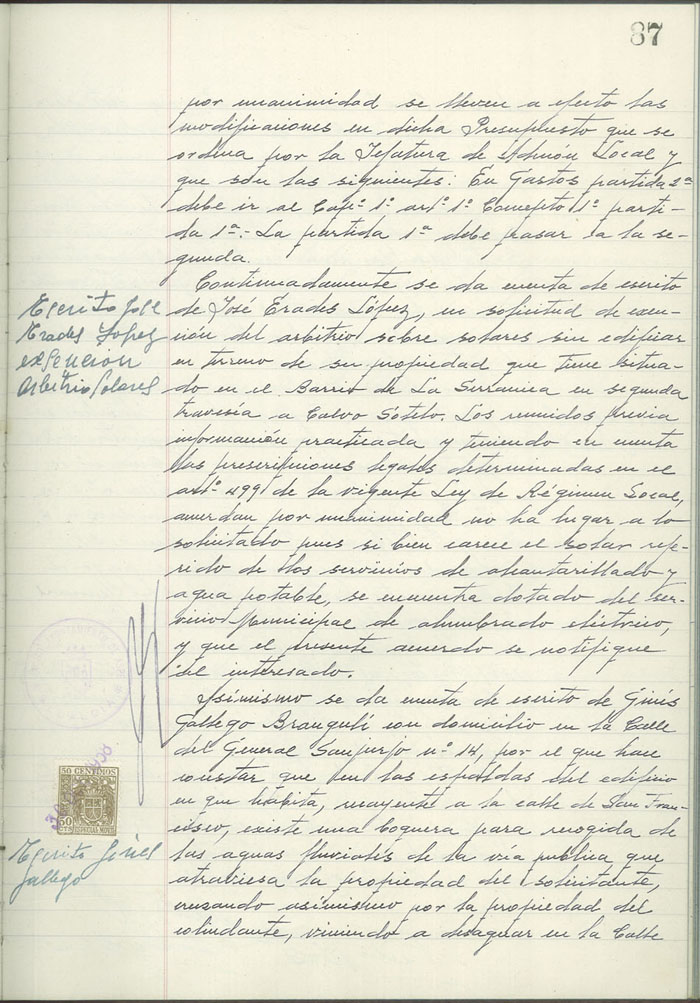 87
por unanimidad se lleven a efecto las
modificaciones en dicho Presupuesto que se
ordena por la Jefatura de Admón Local y
que son las siguientes: En Gastos partida 2ª
debe ir al Capº 1º artº 1º Concepto 1º parti-
da 1ª.- La partida 1ª debe pasar a la se-
gunda.
Continuadamente se da cuenta de escrito
de José Erades López, en solicitud de exen-
ción del arbitrio sobre solares sin edificar
en terreno de su propiedad que tiene situa-
do en el Barrio de La Serranica en segunda
travesía a Calvo Sotelo. Los reunidos previa
información practicada y teniendo en cuenta
las prescripciones legales determinadas en el
artº 499 de la vigente Ley de Régimen Local,
acuerdan por unanimidad no ha lugar a lo
solicitado pues si bien carece el solar refe-
rido de los servicios de alcantarillado y
agua potable, se encuentra dotado del ser-
vicio Municipal de alumbrado eléctrico,
y que el presente acuerdo se notifique
al interesado.
Asimismo se da cuenta de escrito de Ginés
Gallego Brangulí con domicilio en la Calle
del General Sanjurjo nº 14, por el que hace
constar que en las espaldas del edificio
en que habita, recayente a la calle de San Fran-
cisco, existe una boquera para recogida de
las aguas fluviales de la vía publica que
atraviesa la propiedad del solicitante,
cruzando asimismo por la propiedad del
colindante, viniendo a desaguar en la Calle
Escrito José
Erades Lopez
exsencion
Arbitrio Solares
50 CENTIMOS
50
CTS
ESPECIAL MOVIL
Escrito Ginés
Gallego